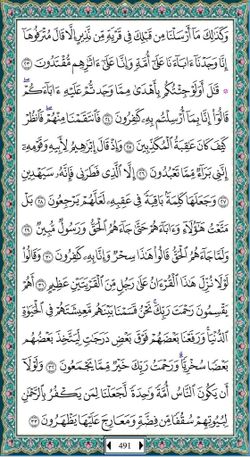 وَكَذَٰلِكَ مَآ أَرْسَلْنَا مِن قَبْلِكَ فِى قَرْيَةٍ مِّن نَّذِيرٍ إِلَّا قَالَ مُتْرَفُوهَآ
إِنَّا وَجَدْنَآ ءَابَآءَنَا عَلَىٰٓ أُمَّةٍ وَإِنَّا عَلَىٰٓ ءَاثَٰرِهِم مُّقْتَدُونَ ٢٣
۞ قَٰلَ أَوَلَوْ جِئْتُكُم بِأَهْدَىٰ مِمَّا وَجَدتُّمْ عَلَيْهِ ءَابَآءَكُمْ
قَالُوٓا۟ إِنَّا بِمَآ أُرْسِلْتُم بِهِۦ كَٰفِرُونَ ٢٤ فَٱنتَقَمْنَا مِنْهُمْ فَٱنظُرْ
كَيْفَ كَانَ عَٰقِبَةُ ٱلْمُكَذِّبِينَ ٢٥ وَإِذْ قَالَ إِبْرَٰهِيمُ لِأَبِيهِ وَقَوْمِهِۦٓ
إِنَّنِى بَرَآءٌ مِّمَّا تَعْبُدُونَ ٢٦ إِلَّا ٱلَّذِى فَطَرَنِى فَإِنَّهُۥ سَيَهْدِينِ
٢٧ وَجَعَلَهَا كَلِمَةًۢ بَاقِيَةً فِى عَقِبِهِۦ لَعَلَّهُمْ يَرْجِعُونَ ٢٨ بَلْ
مَتَّعْتُ هَٰٓؤُلَآءِ وَءَابَآءَهُمْ حَتَّىٰ جَآءَهُمُ ٱلْحَقُّ وَرَسُولٌ مُّبِينٌ ٢٩
وَلَمَّا جَآءَهُمُ ٱلْحَقُّ قَالُوا۟ هَٰذَا سِحْرٌ وَإِنَّا بِهِۦ كَٰفِرُونَ ٣٠ وَقَالُوا۟
لَوْلَا نُزِّلَ هَٰذَا ٱلْقُرْءَانُ عَلَىٰ رَجُلٍ مِّنَ ٱلْقَرْيَتَيْنِ عَظِيمٍ ٣١ أَهُمْ
يَقْسِمُونَ رَحْمَتَ رَبِّكَ ۚ نَحْنُ قَسَمْنَا بَيْنَهُم مَّعِيشَتَهُمْ فِى ٱلْحَيَوٰةِ
ٱلدُّنْيَا ۚ وَرَفَعْنَا بَعْضَهُمْ فَوْقَ بَعْضٍ دَرَجَٰتٍ لِّيَتَّخِذَ بَعْضُهُم
بَعْضًا سُخْرِيًّا ۗ وَرَحْمَتُ رَبِّكَ خَيْرٌ مِّمَّا يَجْمَعُونَ ٣٢ وَلَوْلَآ
أَن يَكُونَ ٱلنَّاسُ أُمَّةً وَٰحِدَةً لَّجَعَلْنَا لِمَن يَكْفُرُ بِٱلرَّحْمَٰنِ
لِبُيُوتِهِمْ سُقُفًا مِّن فِضَّةٍ وَمَعَارِجَ عَلَيْهَا يَظْهَرُونَ ٣٣
491